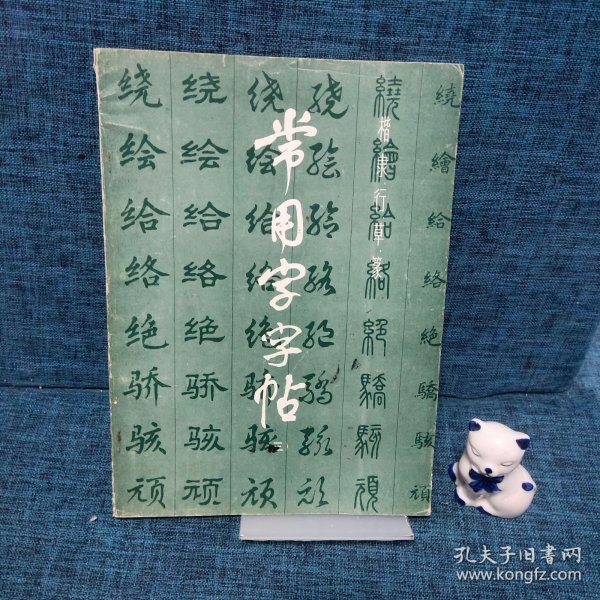 常用字字帖
楷·隶·行·草·篆
绕 绕 绕 绕 繞 繞
绘 绘 绘 绘 繪 繪
给 给 给 给 給 給
络 络 络 络 絡 絡
绝 绝 绝 绝 絕 絶
骄 骄 骄 驕 驕 驕
骇 骇 骇 駭 駭 駭
顽 顽 顽 顽 頑 頑
孔夫子旧書网
www.kongfz.com